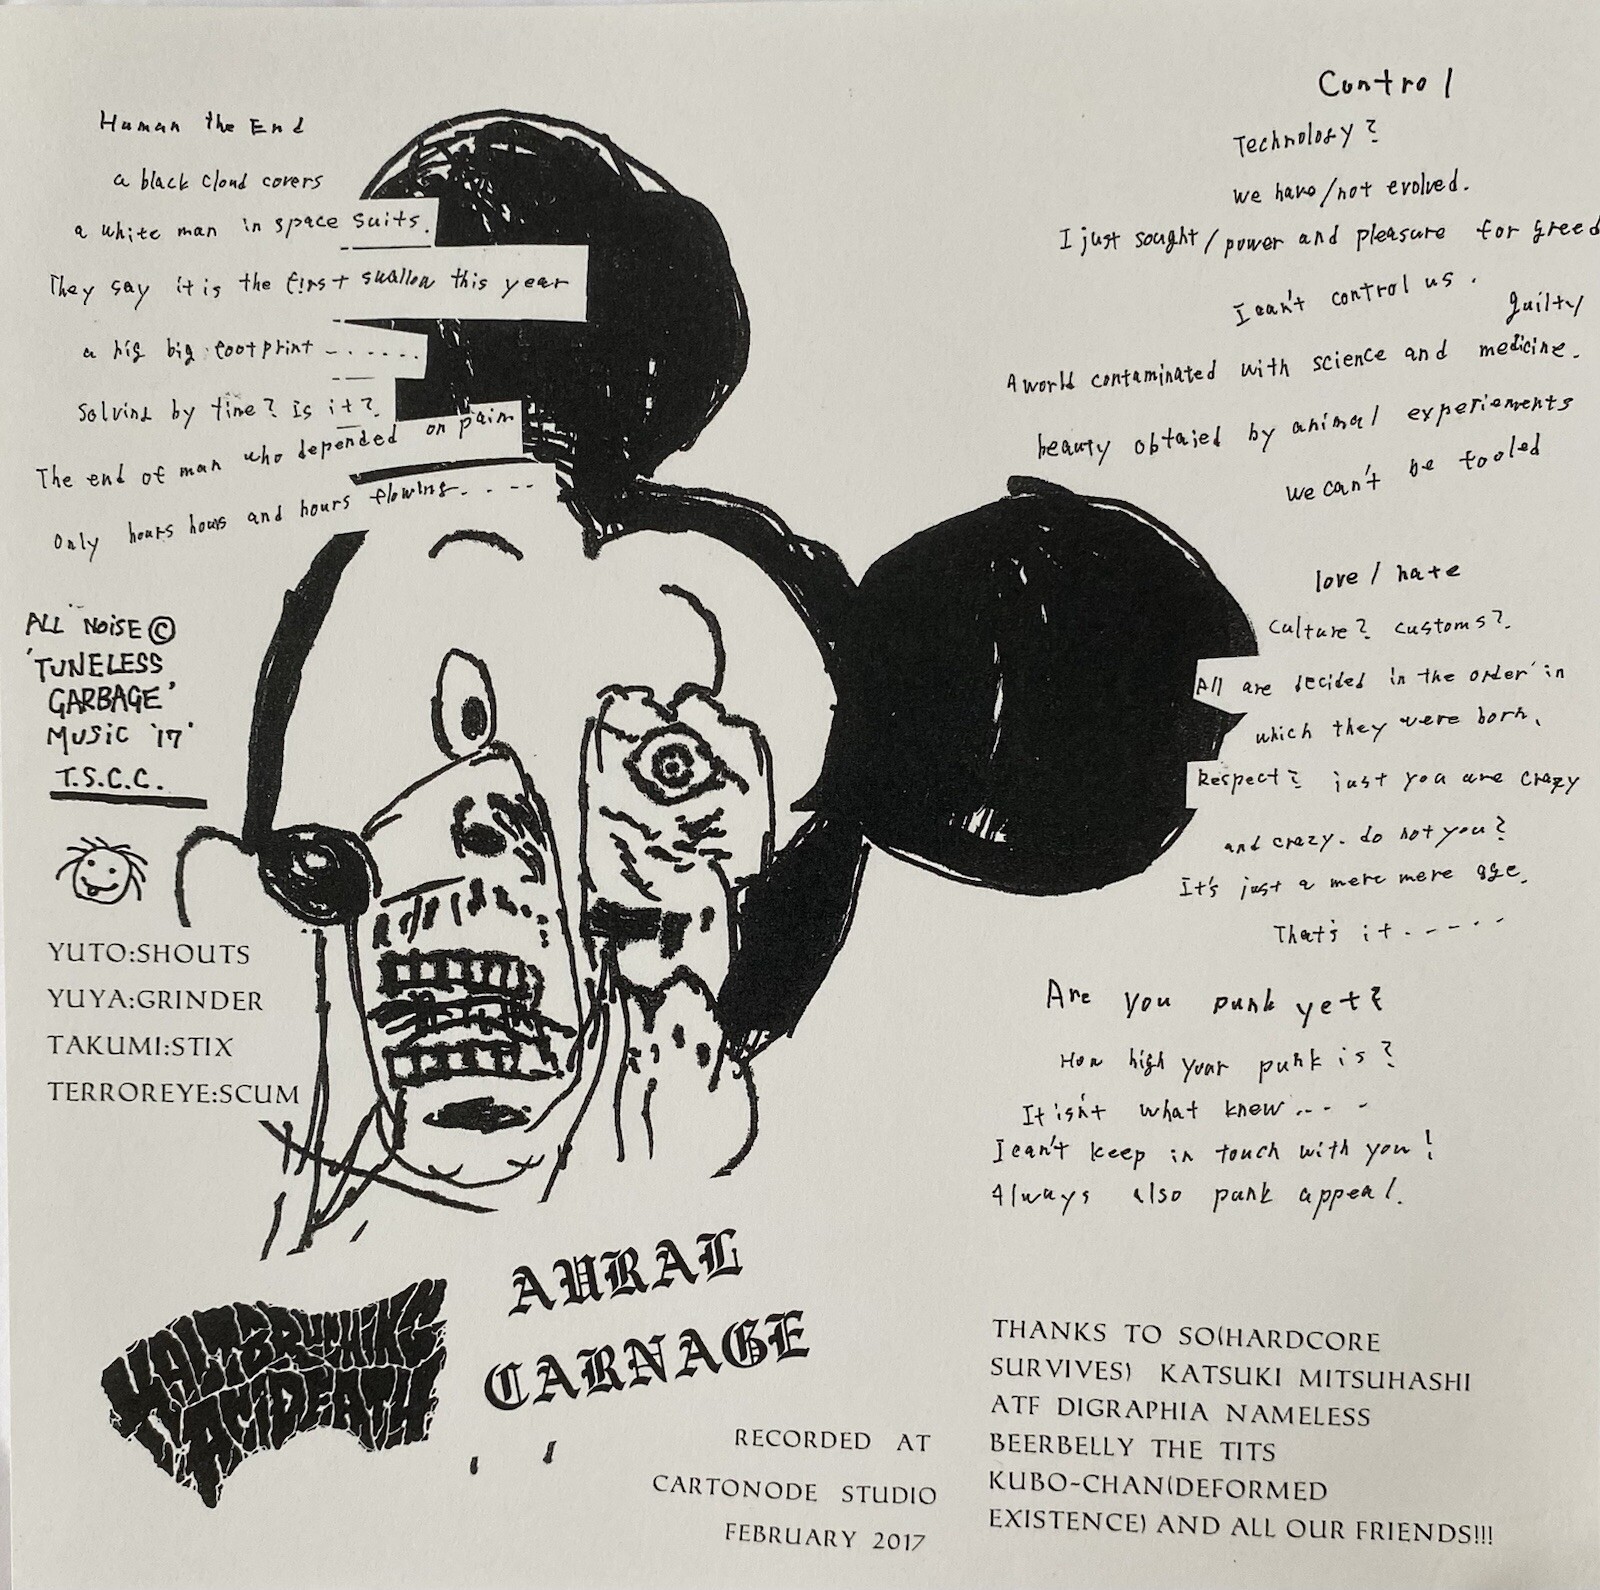 Human the End
a black cloud covers
a white man in space suits.
They say it is the first swallow this year
a big big footprint - - . . . .
Solving by time? Is it?
The end of man who depended on pain
Only hours hours and hours flowing. . - -
ALL NOiSE ©
'TUNELESS
GARBAGE'
MUSiC '17'
T.S.C.C.
YUTO:SHOUTS
YUYA:GRINDER
TAKUMI:STIX
TERROREYE:SCUM
AURAL
CARNAGE
RECORDED AT
CARTONODE STUDIO
FEBRUARY 2017
Control
Technology?
we have/not evolved.
I just sought/power and pleasure for greed
I can't control us.
guilty
A world contaminated with science and medicine.
beauty obtaied by animal experiements
we can't be fooled
love / hate
Culture? customs?.
All are decided in the order in
which they were born.
Respect? just you are crazy
and crazy. do not you?
It's just a mere mere age.
That's it - - - - -
Are you punk yet?
How high your punk is?
It isn't what knew - - -
I can't keep in touch with you!
Always also punk appeal.
THANKS TO SO(HARDCORE
SURVIVES) KATSUKI MITSUHASHI
ATF DIGRAPHIA NAMELESS
BEERBELLY THE TITS
KUBO-CHAN(DEFORMED
EXISTENCE) AND ALL OUR FRIENDS!!!